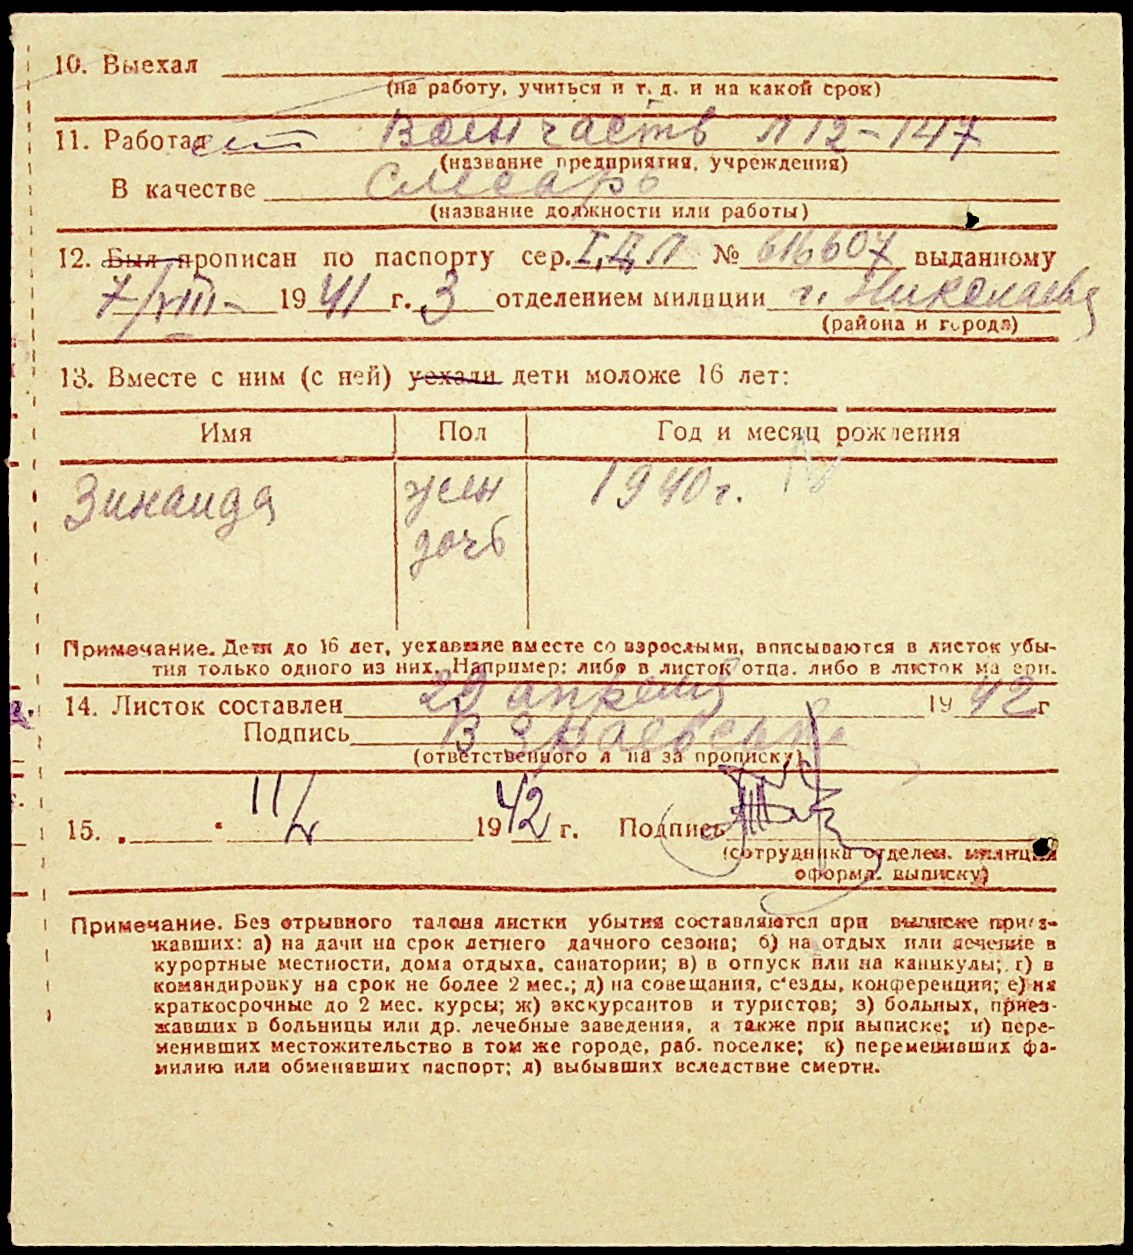 10. Выехал
(на работу, учиться и т. д. и на какой срок)
11. Работает Воен часть п 12-147
(название предприятия, учреждения)
В качестве Слесарь
(название должности или работы)
12. Был прописан по паспорту сер. № 616607 выданному
7/VIII- 1941 г. 3 отделением милиции г. Николаева
(района и города)
13. Вместе с ним (с ней) уехали дети моложе 16 лет:
Имя Пол Год и месяц рождения
Зинаида жен 1940 г.
дочь
Примечание. Дети до 16 лет, уехавшие вместе со взрослыми, вписываются в листок убы-
тия только одного из них. Например: либо в листок отца, либо в листок матери.
14. Листок составлен 29 апреля 1942 г
Подпись
(ответственного л на за прописку)
15. 11/V 1942 г. Подпись
(сотрудника отделен. милиции
оформл. выписку)
Примечание. Без отрывного талона листки убытия составляются при выписке приез-
жавших: а) на дачи на срок летнего дачного сезона; б) на отдых или лечение в
курортные местности, дома отдыха, санатории; в) в отпуск или на каникулы; г) в
командировку на срок не более 2 мес.; д) на совещания, с'езды, конференции; е) на
краткосрочные до 2 мес. курсы; ж) экскурсантов и туристов; з) больных, приез-
жавших в больницы или др. лечебные заведения, а также при выписке; и) пере-
менивших местожительство в том же городе, раб. поселке; к) переменивших фа-
милию или обменявших паспорт; л) выбывших вследствие смерти.